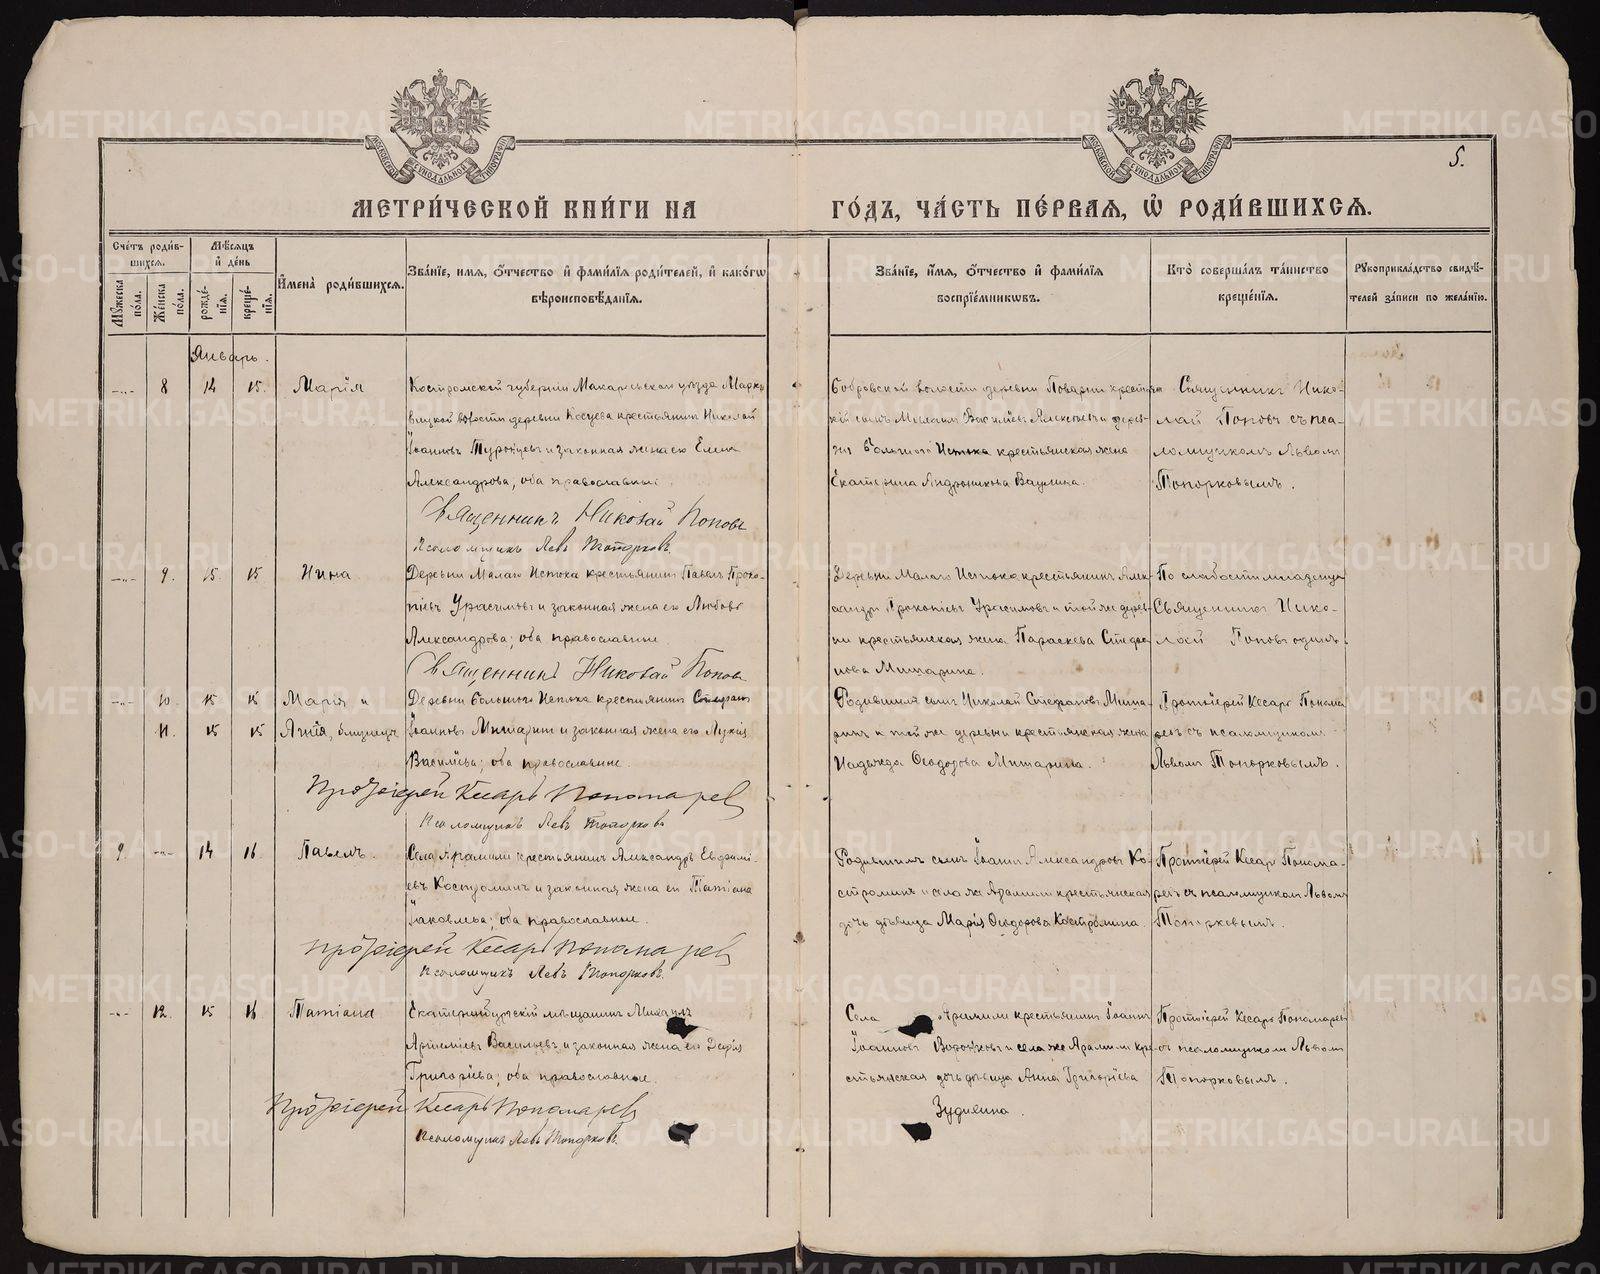 5.
МЕТРИ́ЧЕСКОЙ КНИ́ГИ НА ГО́ДЪ, ЧА́СТЬ ПЕ́РВАЯ, Ѡ҆ РОДИ́ВШИХСѦ.
Сче́тъ роди́в-
шихсѧ.
Мꙋжеска по́ла.
Же́нска по́ла.
Мѣ́сѧцъ
и҆ де́нь
рожде́-
нїѧ.
креще́-
нїѧ.
И҆мена̀ роди́вшихсѧ.
Зва́нїе, имѧ, ѻ҆́тчество и҆ фами́лїѧ роди́телей, и҆ како́гѡ
вѣроисповѣ́данїѧ.
Зва́нїе, и҆́мѧ, ѻ҆́тчество и҆ фами́лїѧ
воспрїе́мникѡвъ.
Кто̀ соверша́лъ та́инство
креще́нїѧ.
Рꙋкоприкла́дство свидѣ́-
телей за́писи по жела́нїю.
Январь.
8 14 15. Марія
Костромской губерніи Макарьевскаго уѣзда Марко-
вицкой волости деревни крестьянинъ Николай
Іоанновъ и законная жена его Елена
Александрова; оба православные.
Священникъ Николай Поповъ
Псаломщикъ Левъ Топорковъ
Бобровской волости деревни Поварни крестьян-
скій сынъ Михаилъ Васильевъ Алексѣевъ и дерев-
ни Большого Истока крестьянская жена
Екатерина Андроникова Ваулина.
Священникъ Нико-
лай Поповъ съ пса-
ломщикомъ Львомъ
Топорковымъ.
9. 15. 15 Нина
Деревни Малаго Истока крестьянинъ Павелъ Проко-
піевъ Урасимовъ и законная жена его Любовь
Александрова; оба православные.
Священникъ Николай Поповъ
Деревни Малаго Истока крестьянинъ Алек-
сандръ Прокопіевъ Урасимовъ и той же дерев-
ни крестьянская жена Параскева Стефа-
нова Мишарина.
По слабости младенца
Священникъ Нико-
лай Поповъ одинъ.
10. 15 15 Марія и
11. 15 15 Агнія, близнецы
Деревни Большого Истока крестьянинъ Стефанъ
Іоанновъ Мишаринъ и законная жена его Лукія
Васильева; оба православные.
Протоіерей Кесарь Пономаревъ
Псаломщикъ Левъ Топорковъ
Родившихъ сынъ Николай Стефановъ Миша-
ринъ и той же деревни крестьянская жена
Надежда Ѳеодорова Мишарина.
Протоіерей Кесарь Понома-
ревъ съ псаломщикомъ
Львомъ Топорковымъ.
9. 14 16 Павелъ.
Села Арамили крестьянинъ Александръ Евфимі-
евъ Костроминъ и законная жена его Татіана
Іаковлева; оба православные.
Протоіерей Кесарь Пономаревъ
Псаломщикъ Левъ Топорковъ.
Родившихъ сынъ Іоаннъ Александровъ Ко-
строминъ и села же Арамили крестьянская
дочь дѣвица Марія Ѳеодорова Костромина.
Протоіерей Кесарь Понома-
ревъ съ псаломщикомъ Львомъ
Топорковымъ.
12. 15 16 Татіана
Екатеринбургскій мѣщанинъ Михаилъ
Артеміевъ Васильевъ и законная жена его Дарія
Григоріева; оба православные.
Протоіерей Кесарь Пономаревъ
Псаломщикъ Левъ Топорковъ.
Села Арамили крестьянинъ Іоаннъ
Іоанновъ и села же Арамили кре-
стьянская дочь дѣвица Анна Григоріева
Зудихина.
Протоіерей Кесарь Пономаревъ
съ псаломщикомъ Львомъ
Топорковымъ.
METRIKI.GASO-URAL.RU